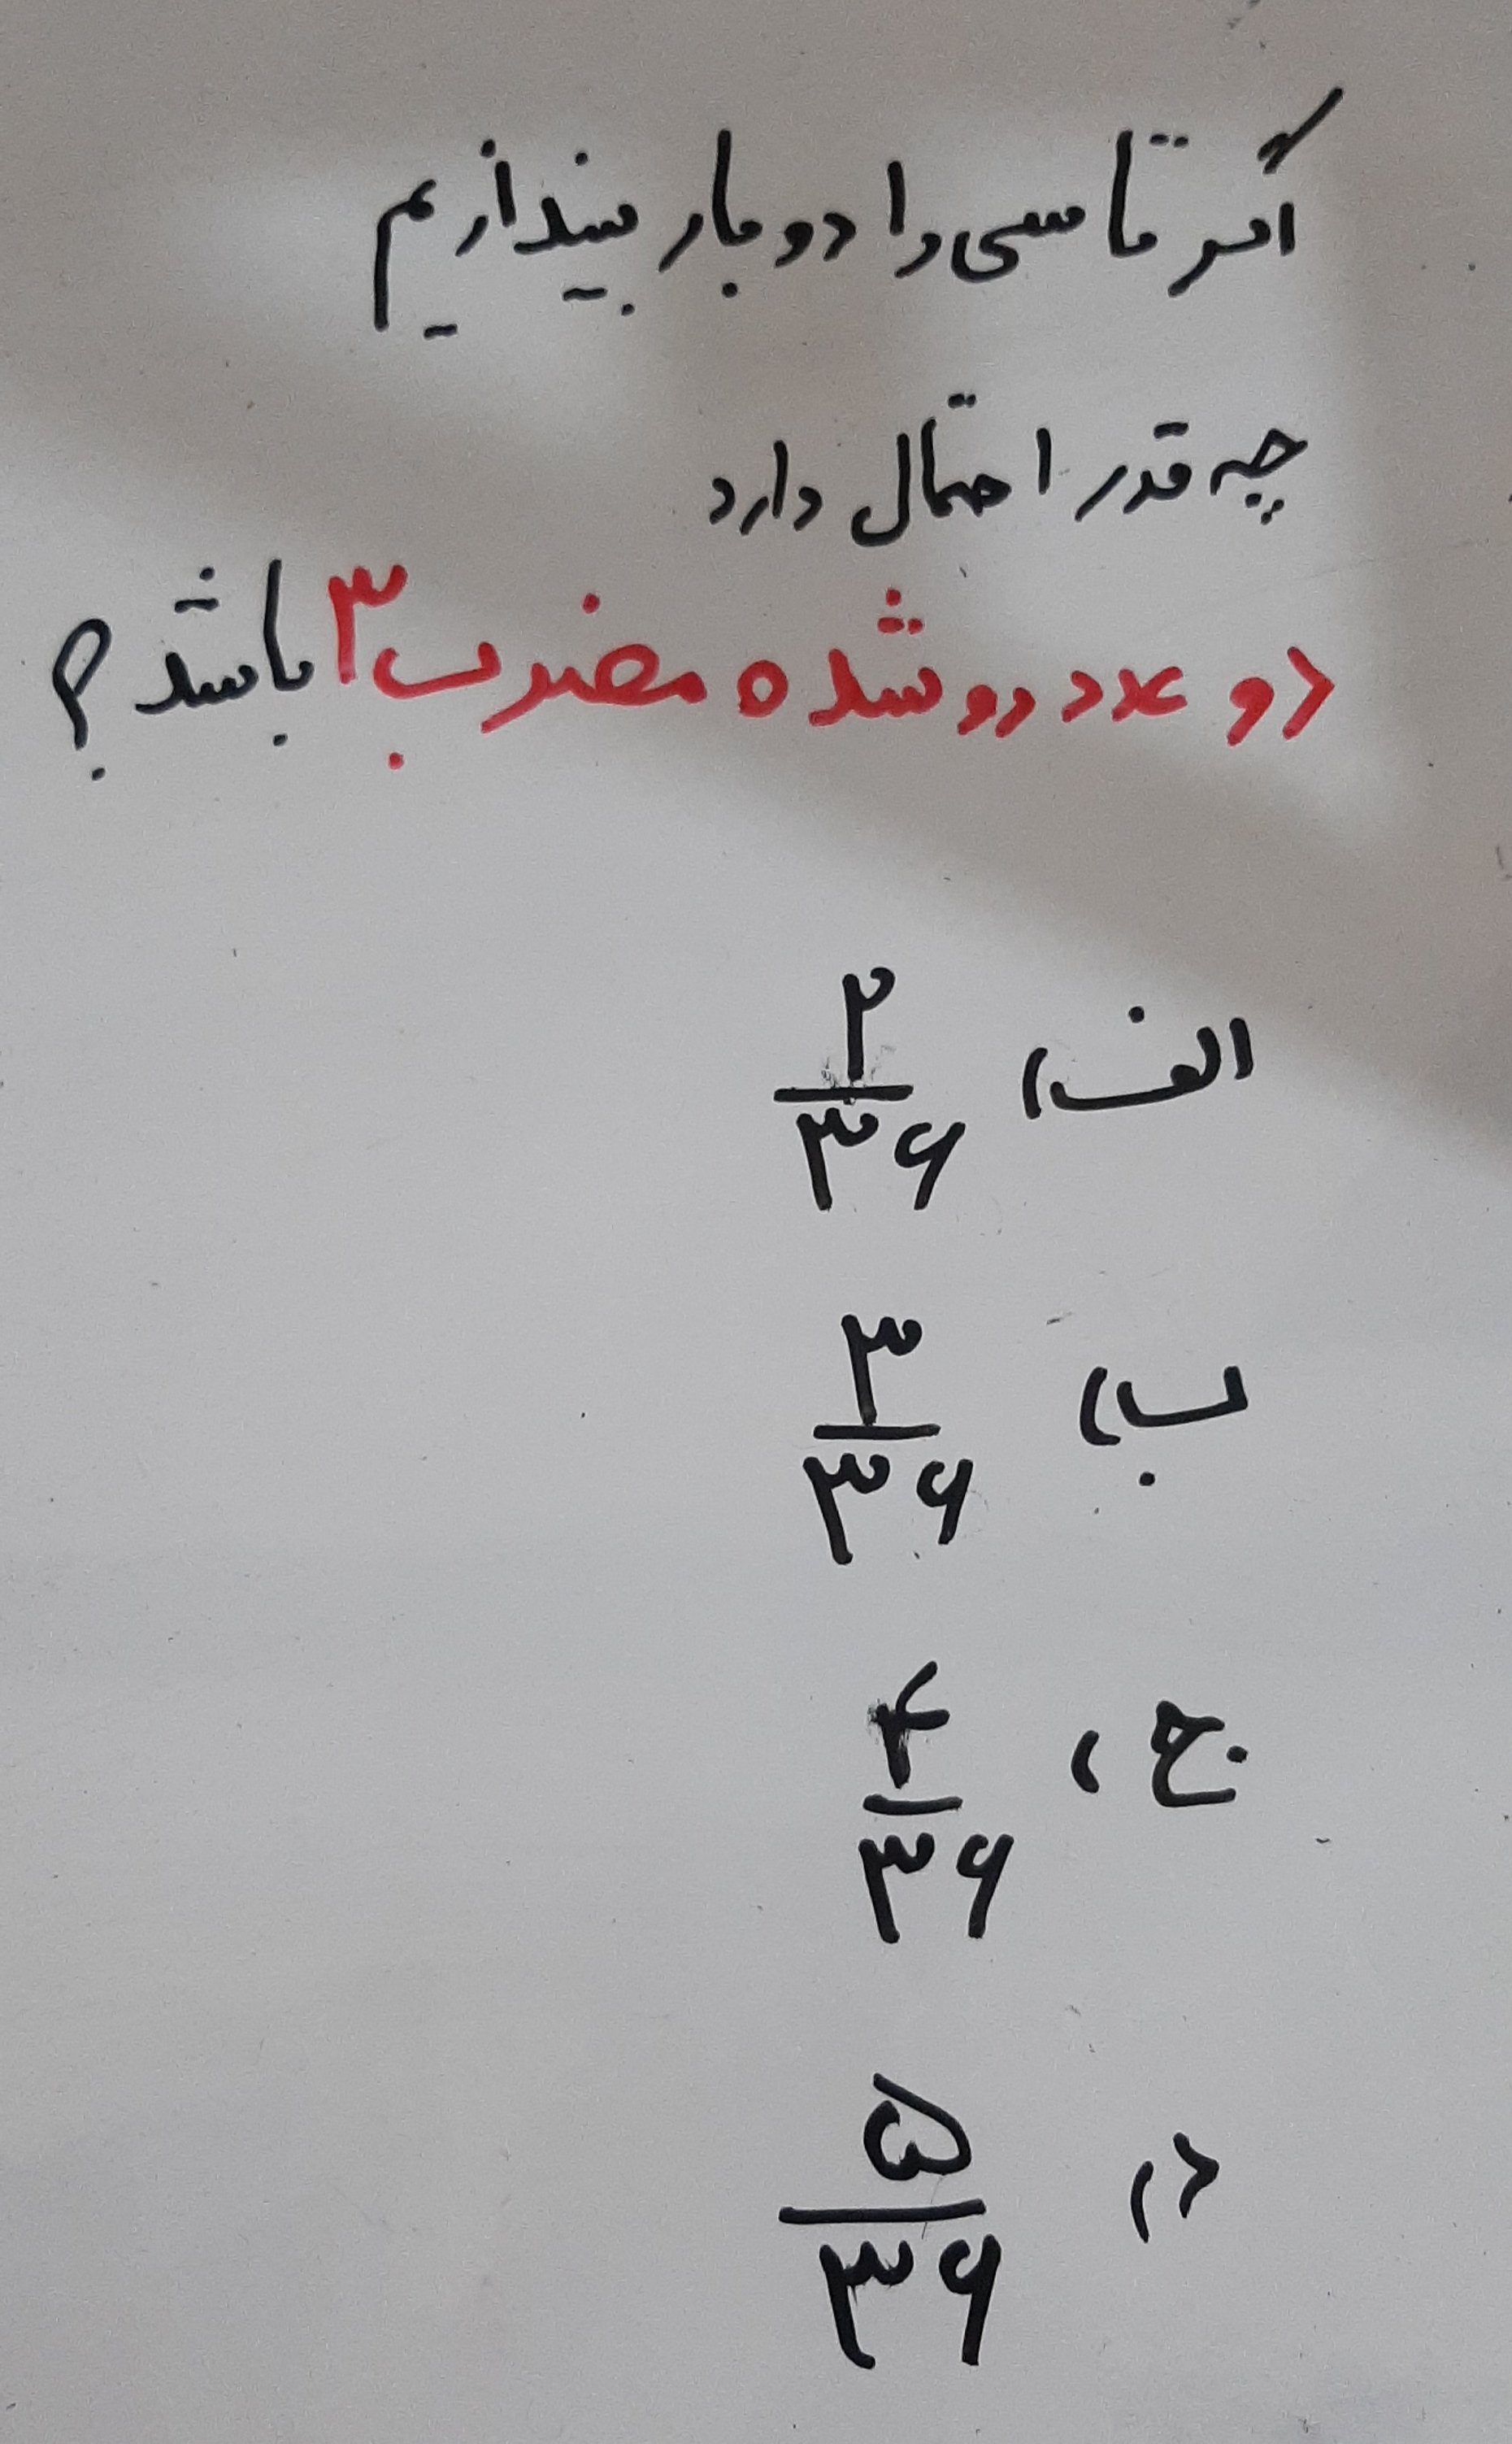 اگر تاسی را دو بار بیندازیم
چه قدر احتمال دارد
دو عدد رو شده مضرب ۳ باشد؟
الف) ۲/۳۶
ب) ۳/۳۶
ج) ۴/۳۶
د) ۵/۳۶